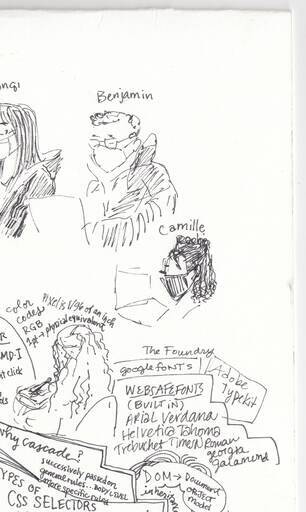 ngi
Benjamin
Camille
color
codes
RGB
Pixel is 1/96 of an inch
1pt → physical equivalent
R
MD-I
t click
The Foundry
google FONTS
Adobe
Typekit
WEBSAFE FONTS
(BUILT IN)
Arial Verdana
Helvetica Tahoma
Trebuchet Times N Roman
georgia
galamond
Why Cascade?
successively passed on
general rules...
more specific rules
TYPES OF
CSS SELECTORS
DOM → Document
object
model